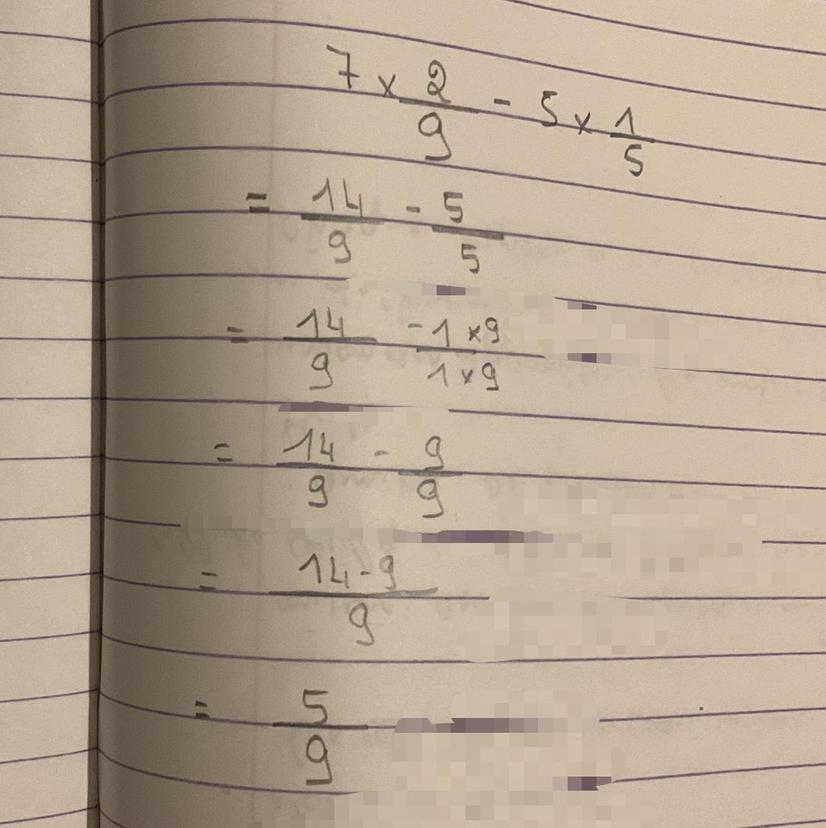 7 × 2/9 - 5 × 1/5
= 14/9 - 5/5
= 14/9 - 1×9/1×9
= 14/9 - 9/9
= 14-9/9
= 5/9